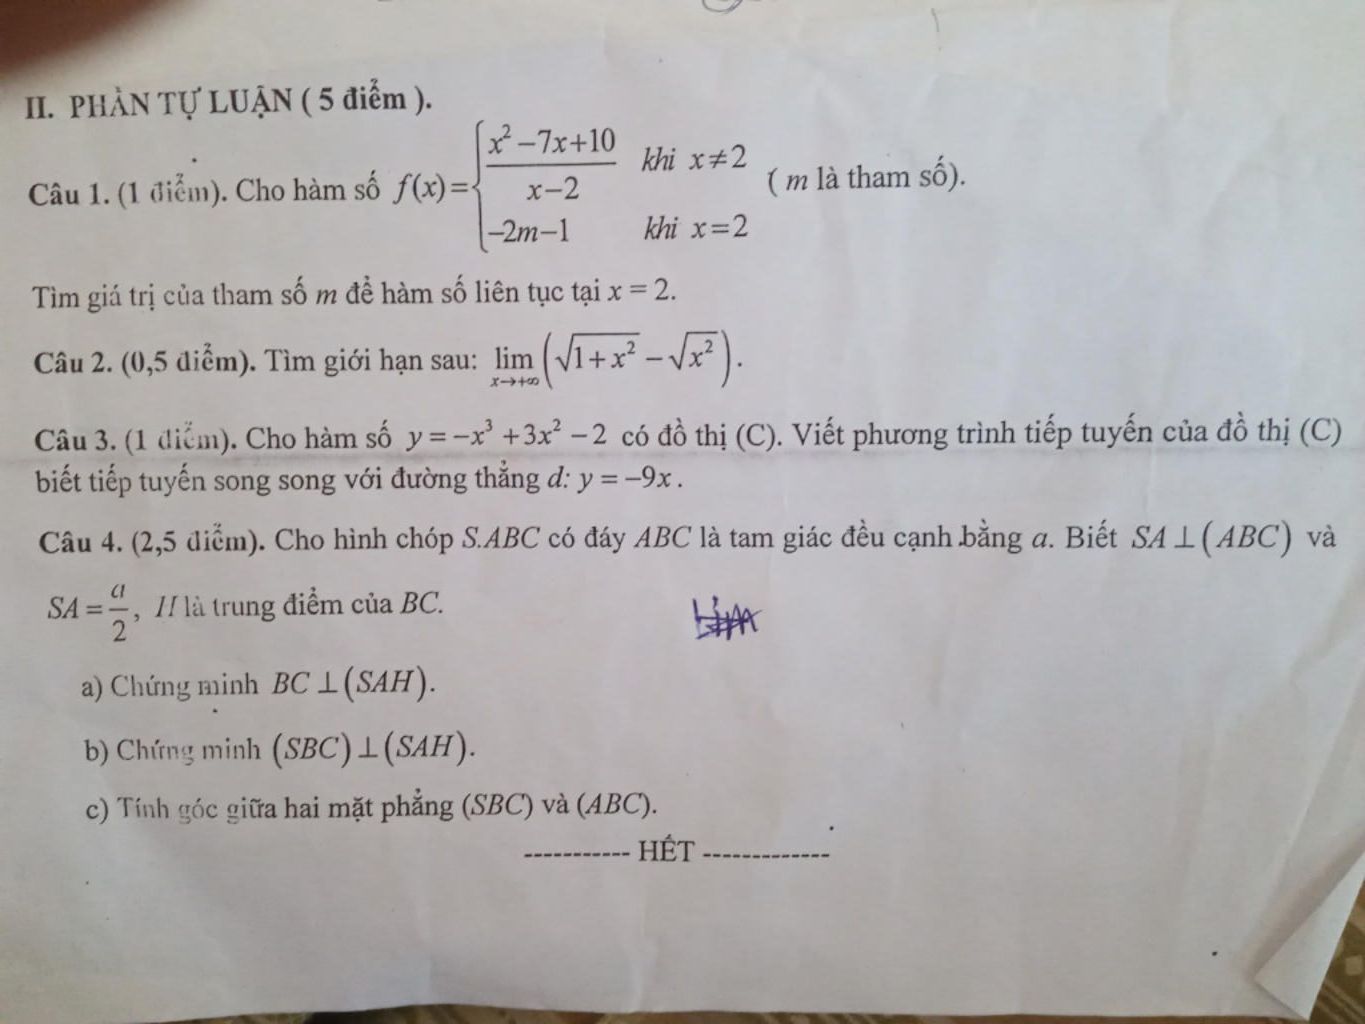 II. PHẦN TỰ LUẬN ( 5 điểm ).
Câu 1. (1 điểm). Cho hàm số f(x) = { (x² − 7x + 10)/(x − 2) khi x ≠ 2 ; −2m − 1 khi x = 2 ( m là tham số).
Tìm giá trị của tham số m để hàm số liên tục tại x = 2.
Câu 2. (0,5 điểm). Tìm giới hạn sau: lim x→+∞ (√(1 + x²) − √(x²)).
Câu 3. (1 điểm). Cho hàm số y = −x³ + 3x² − 2 có đồ thị (C). Viết phương trình tiếp tuyến của đồ thị (C)
biết tiếp tuyến song song với đường thẳng d: y = −9x.
Câu 4. (2,5 điểm). Cho hình chóp S.ABC có đáy ABC là tam giác đều cạnh bằng a. Biết SA ⊥ (ABC) và
SA = a/2, H là trung điểm của BC.
a) Chứng minh BC ⊥ (SAH).
b) Chứng minh (SBC) ⊥ (SAH).
c) Tính góc giữa hai mặt phẳng (SBC) và (ABC).
----------- HẾT -------------